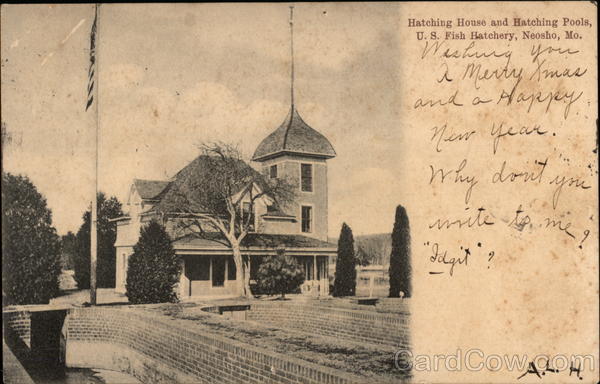 Hatching House and Hatching Pools,
U. S. Fish Hatchery, Neosho, Mo.
Wishing you
A Merry Xmas
and a Happy
New Year.
Why don't "you
write to me,
"Idgit"?
A. L. H.
CardCow.com